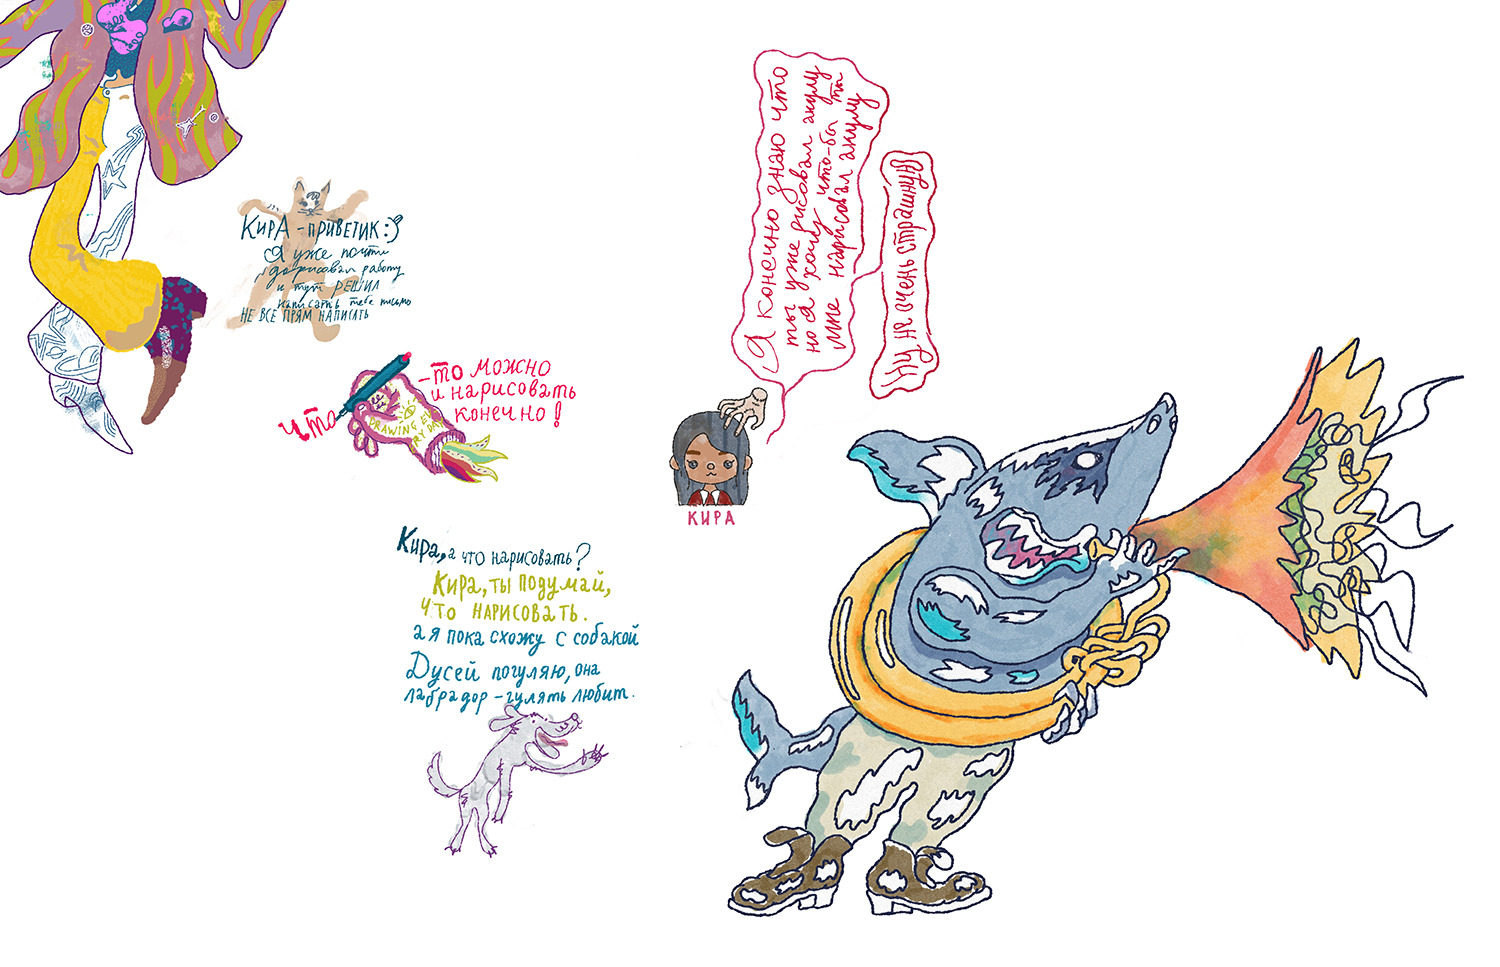 КирА - приветик :)
Я уже почти
дорисовал работу
и тут РЕШИЛ
написать тебе письмо
НЕ ВСЕ ПРЯМ НАПИСАТЬ
что
-то можно
и нарисовать
конечно!
DRAWING
Кира, а что нарисовать?
Кира, ты подумай,
что нарисовать.
а я пока схожу с собакой
Дусей погуляю, она
лабрадор - гулять любит.
Я конечно знаю что
ты уже рисовал акулу
но я хочу что-бы ты
мне нарисовал акулу
Ну не очень страшную
КИРА